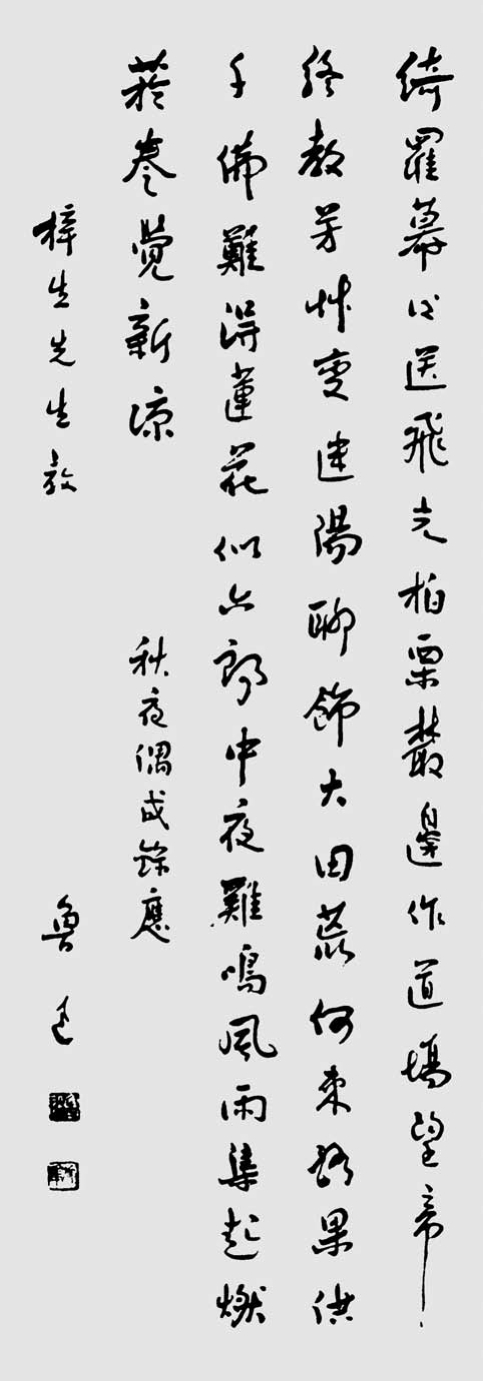 綺羅幕後送飛光柏栗叢邊作道場望帝
終教芳艸變迷陽聊飾大田荒何来酪果供
千佛難得蓮花似六郎中夜雞鳴風雨集起燃
菸卷覺新涼
秋夜偶成錄應
梓生先生教
魯迅